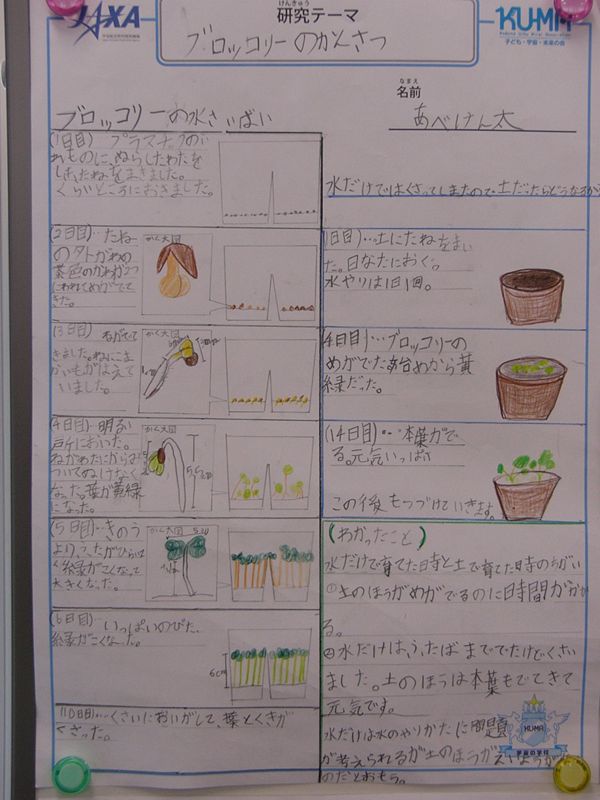 JAXA
けんきゅう
研究テーマ
KUMA
子ども・宇宙・未来の会
ブロッコリーのかんさつ
なまえ
名前
あべけん太
ブロッコリーの水さいばい
(1日目) プラスチックのい
れものに、ぬらしたわたを
しき、たねをまきました。
くらいところにおきました。
(2日目)…たね
の外がわの
茶色のかわが2つ
にわれてめがでて
きた。
かく大図
(3日目) ねがでて
きました。ねにこま
かい毛がはえて
いました。
かく大図
(4日目) 明るい
所においた。
ねがわたにからま
ついてぬけなく
なった。葉が黄緑
になった。
かく大図
(5日目)…きのう
より、ふたばがひらいて
緑がこくなって
大きくなった。
かく大図
(6日目) いっぱいのびた。
緑がこくなった。
6cm
(10日目)…くさいにおいがして、葉とくきが
くさった。
水だけではくさってしまたので土だったらどうなるか
1日目)…土にたねをまい
た。日なたにおく。
水やりは1日1回。
4日目)…ブロッコリーの
めがでた。始めから黄
緑だった。
(14日目)…本葉がで
る。元気いっぱい
この後もつづけていきます。
(わかったこと)
水だけで育てた時と土で育てた時のちがい
①土のほうがめがでるのに時間がかか
る。
②水だけは、ふたばまででたけどくさい
ました。土のほうは本葉もでてきて
元気です。
水だけは水のやりかたに問題
が考えられるが土のほうが
のだとおもう。
KUMA
宇宙の学校